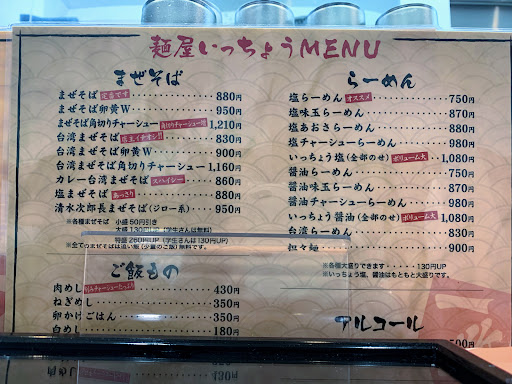 麺屋いっちょうMENU
まぜそば
まぜそば 定番です 880円
まぜそば卵黄W 950円
まぜそば角切りチャーシュー 1,210円
台湾まぜそば 830円
台湾まぜそば卵黄W 900円
台湾まぜそば角切りチャーシュー 1,160円
カレー台湾まぜそば スパイシー 860円
塩まぜそば あっさり 880円
清水次郎長まぜそば(ジロー系) 950円
※各種まぜそば 小盛 50円引き
大盛 130円UP (学生さんは無料)
特盛 260円UP (学生さんは130円UP)
※全てのまぜそばは追い飯(少量のご飯)無料です。
ご飯もの
肉めし 430円
ねぎめし 350円
卵かけごはん 350円
白めし 180円
らーめん
塩らーめん オススメ 750円
塩味玉らーめん 870円
塩あおさらーめん 880円
塩チャーシュらーめん 980円
いっちょう塩(全部のせ) ボリューム大 1,080円
醤油らーめん 750円
醤油味玉らーめん 870円
醤油チャーシュらーめん 980円
いっちょう醤油(全部のせ) ボリューム大 1,080円
台湾らーめん 830円
担々麺 900円
※各種大盛りできます・・・・・・130円UP
※いっちょう塩、醤油はもともと大盛りです。
アルコール
500円